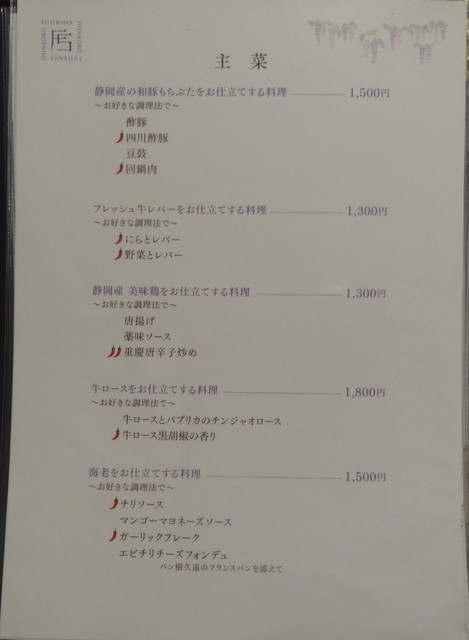 FUJIBANA
主 菜
静岡産の和豚もちぶたをお仕立てする料理 1,500円
〜お好きな調理法で〜
酢豚
四川酢豚
豆鼓
回鍋肉
フレッシュ牛レバーをお仕立てする料理 1,300円
〜お好きな調理法で〜
にらとレバー
野菜とレバー
静岡産 美味鶏をお仕立てする料理 1,300円
〜お好きな調理法で〜
唐揚げ
薬味ソース
重慶唐辛子炒め
牛ロースをお仕立てする料理 1,800円
〜お好きな調理法で〜
牛ロースとパプリカのチンジャオロース
牛ロース黒胡椒の香り
海老をお仕立てする料理 1,500円
〜お好きな調理法で〜
チリソース
マンゴーマヨネーズソース
ガーリックフレーク
エビチリチーズフォンデュ
パン樹久遠のフランスパンを添えて